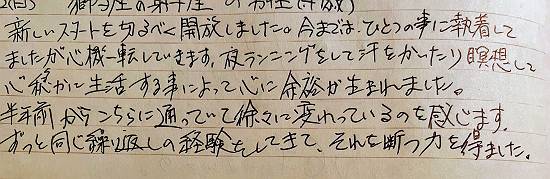 獅子座の射手座の女性
新しいスタートを切るべく開放しました。今までは、ひとつの事に執着して
ましたが心機一転していきます。夜ランニングをして汗をかいたり瞑想して
心穏かに生活する事によって心に余裕が生まれました。
半年前からこちらに通っていて徐々に変わっているのを感じます。
ずっと同じ繰り返しの経験をしてきて、それを断つ力を得ました。